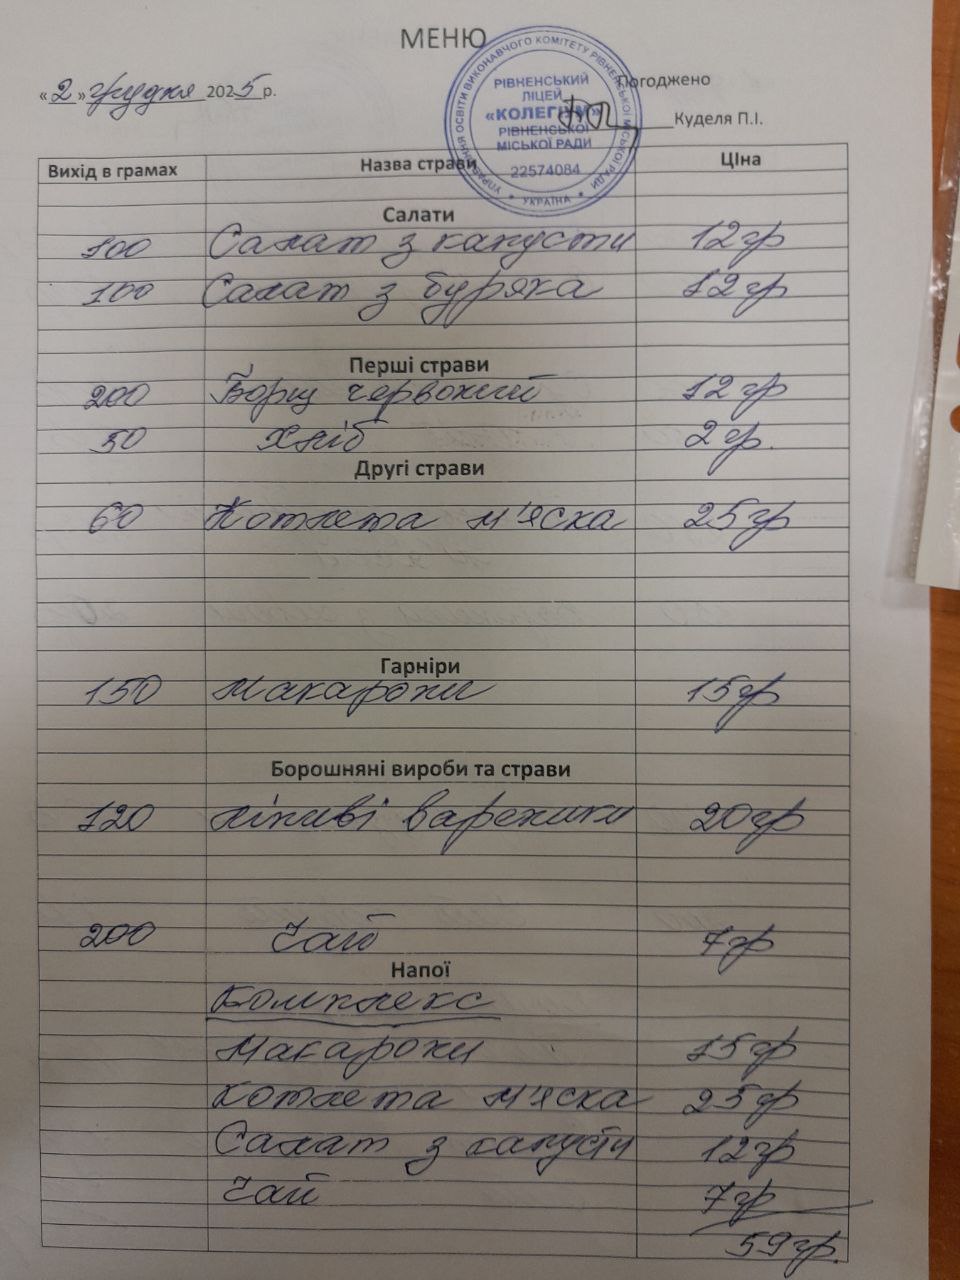 МЕНЮ
«2» грудня 2025р.
Погоджено
Куделя П.І.
УПРАВЛІННЯ ОСВІТИ ВИКОНАВЧОГО КОМІТЕТУ РІВНЕНСЬКОЇ МІСЬКОЇ РАДИ
* УКРАЇНА *
РІВНЕНСЬКИЙ
ЛІЦЕЙ
«КОЛЕГІУМ»
РІВНЕНСЬКОЇ
МІСЬКОЇ РАДИ
22574084
Вихід в грамах Назва страви Ціна
Салати
100 Салат з капусти 12гр
100 Салат з буряка 12гр
Перші страви
200 Борщ червоний 12гр
50 Хліб 2гр.
Другі страви
60 Котлета м'яска 25гр
Гарніри
150 Макарони 15гр
Борошняні вироби та страви
120 лініві вареники 20гр
200 Чай 7гр
Напої
Комплекс
Макарони 15гр
Котлета м'яска 25гр
Салат з капусти 12гр
Чай 7гр
59гр.